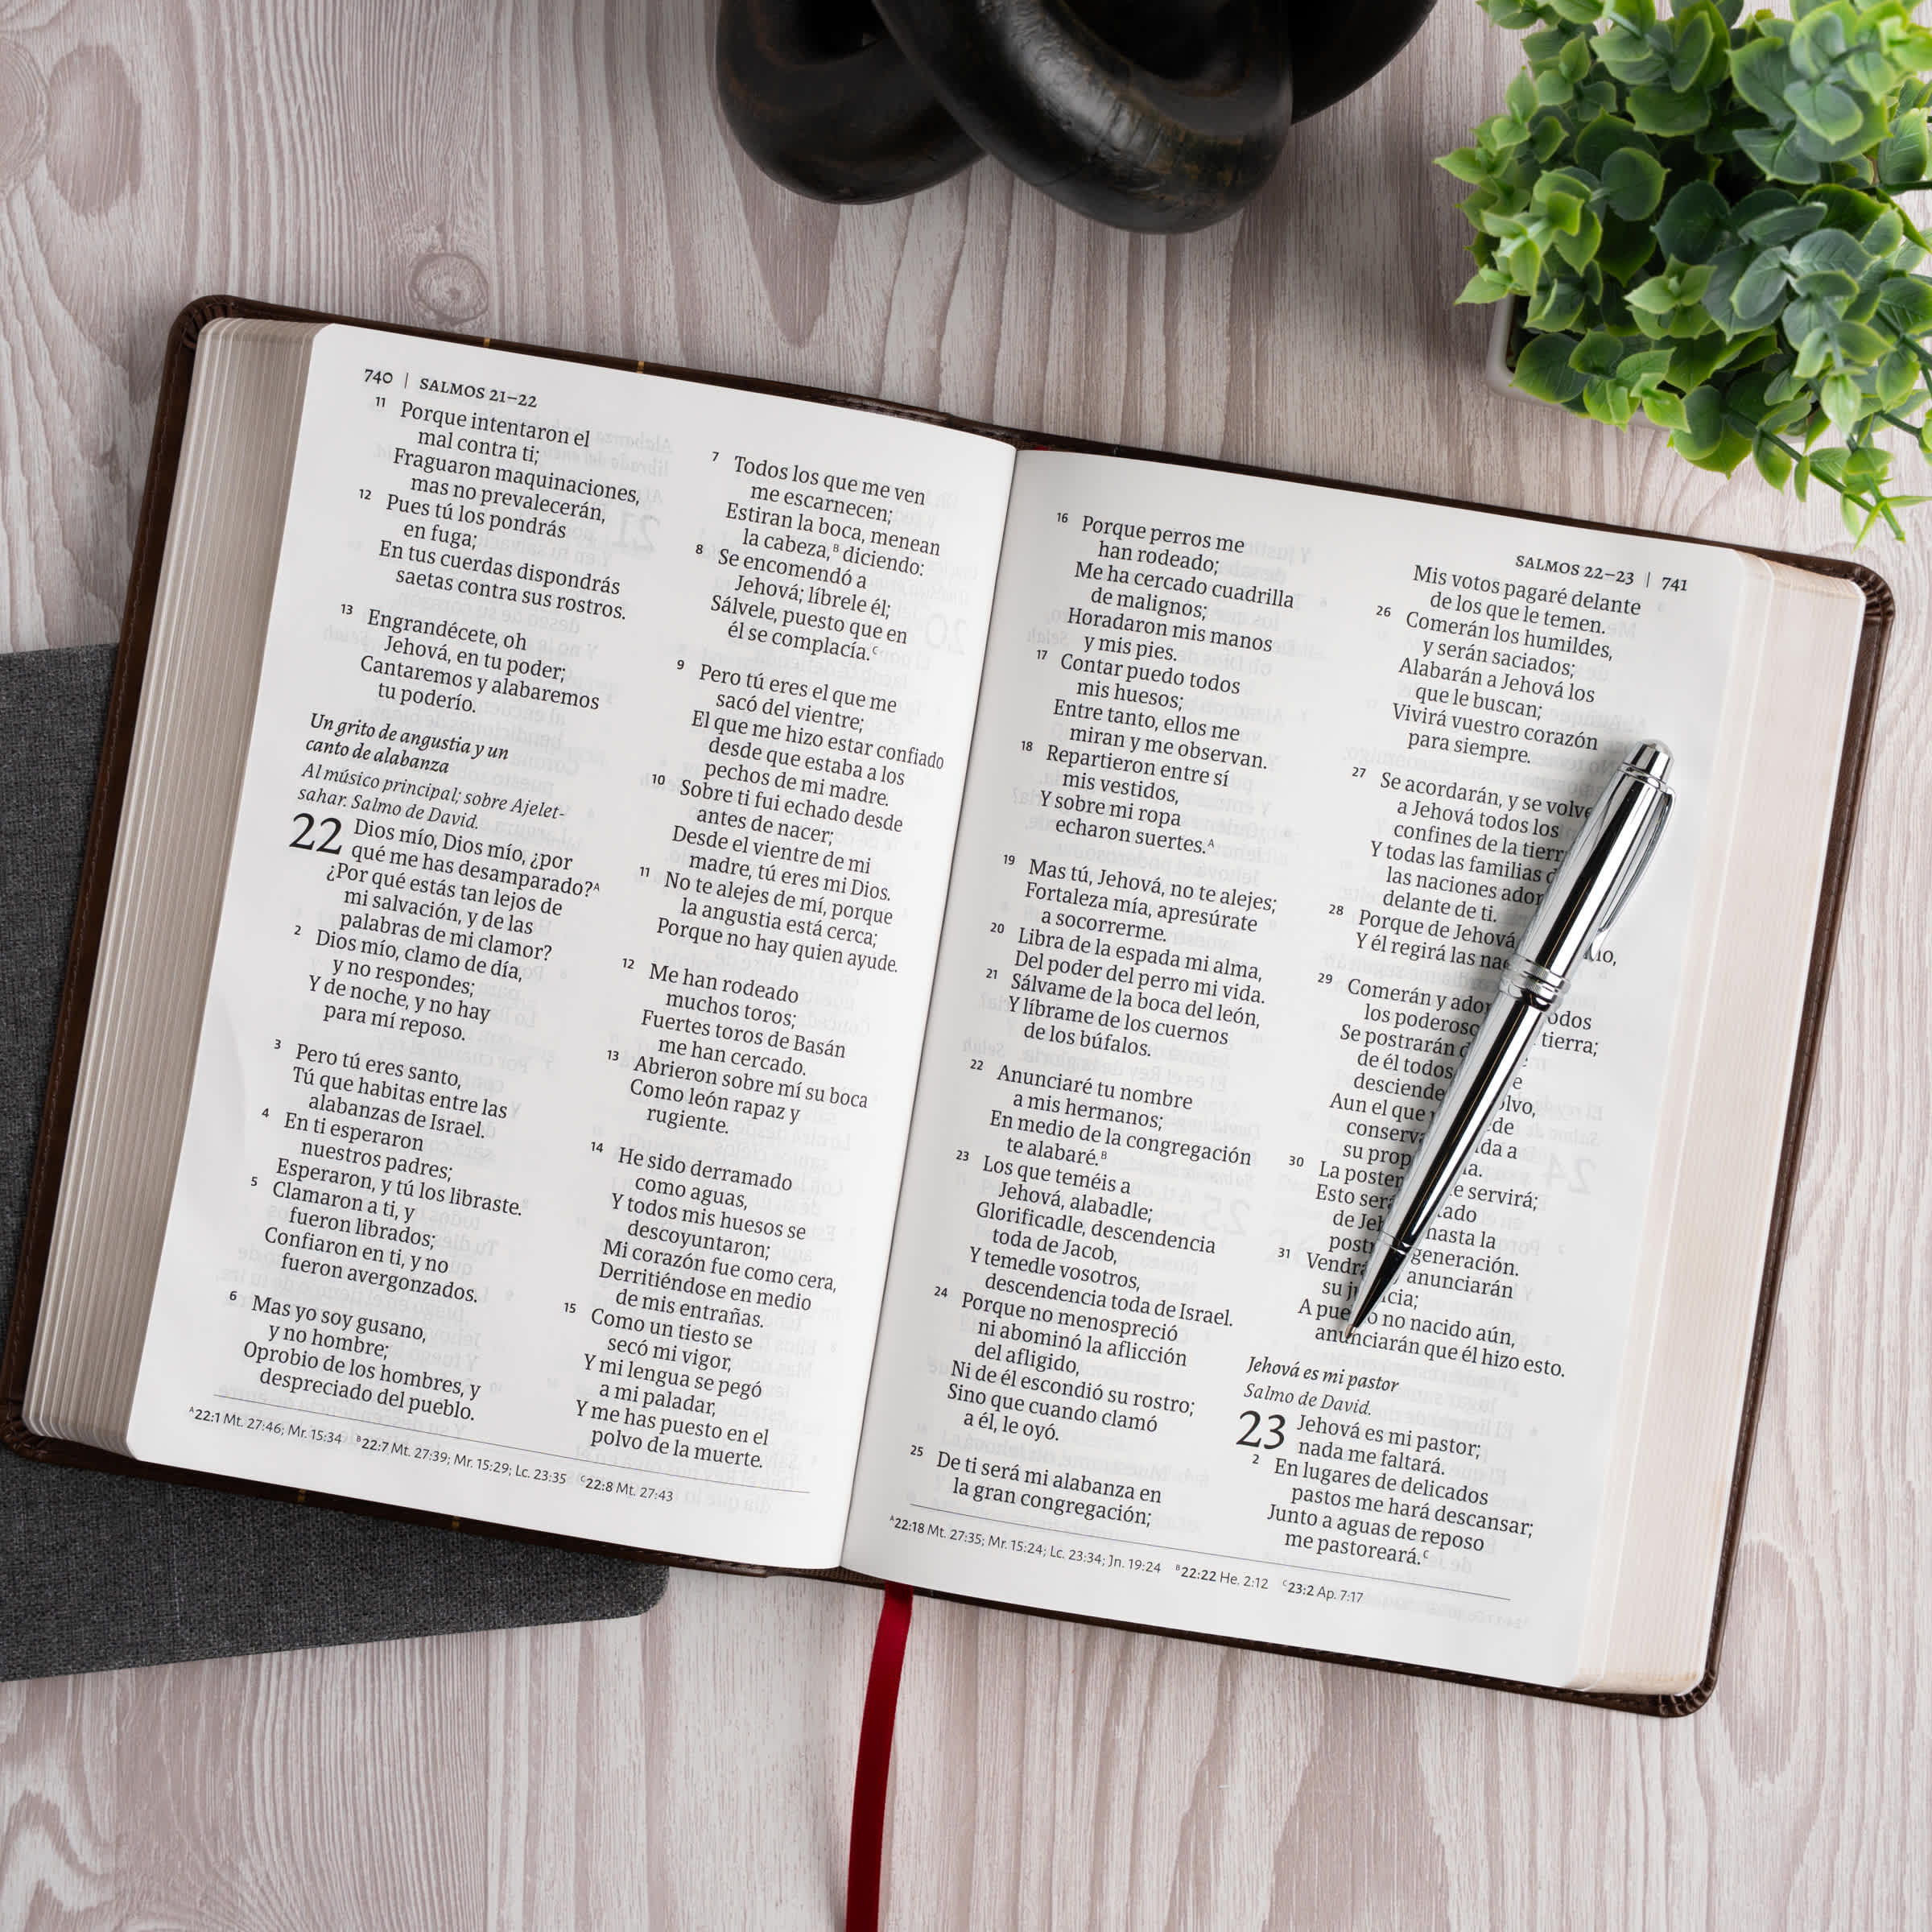 740 | SALMOS 21–22
11 Porque intentaron el
mal contra ti;
Fraguaron maquinaciones,
mas no prevalecerán,
12 Pues tú los pondrás
en fuga;
En tus cuerdas dispondrás
saetas contra sus rostros.
13 Engrandécete, oh
Jehová, en tu poder;
Cantaremos y alabaremos
tu poderío.
Un grito de angustia y un
canto de alabanza
Al músico principal; sobre Ajelet-
sahar. Salmo de David.
22 Dios mío, Dios mío, ¿por
qué me has desamparado?A
¿Por qué estás tan lejos de
mi salvación, y de las
palabras de mi clamor?
2 Dios mío, clamo de día,
y no respondes;
Y de noche, y no hay
para mí reposo.
3 Pero tú eres santo,
Tú que habitas entre las
alabanzas de Israel.
4 En ti esperaron
nuestros padres;
Esperaron, y tú los libraste.
5 Clamaron a ti, y
fueron librados;
Confiaron en ti, y no
fueron avergonzados.
6 Mas yo soy gusano,
y no hombre;
Oprobio de los hombres, y
despreciado del pueblo.
7 Todos los que me ven
me escarnecen;
Estiran la boca, menean
la cabeza,B diciendo:
8 Se encomendó a
Jehová; líbrele él;
Sálvele, puesto que en
él se complacía.C
9 Pero tú eres el que me
sacó del vientre;
El que me hizo estar confiado
desde que estaba a los
pechos de mi madre.
10 Sobre ti fui echado desde
antes de nacer;
Desde el vientre de mi
madre, tú eres mi Dios.
11 No te alejes de mí, porque
la angustia está cerca;
Porque no hay quien ayude.
12 Me han rodeado
muchos toros;
Fuertes toros de Basán
me han cercado.
13 Abrieron sobre mí su boca
Como león rapaz y
rugiente.
14 He sido derramado
como aguas,
Y todos mis huesos se
descoyuntaron;
Mi corazón fue como cera,
Derritiéndose en medio
de mis entrañas.
15 Como un tiesto se
secó mi vigor,
Y mi lengua se pegó
a mi paladar,
Y me has puesto en el
polvo de la muerte.
A22:1 Mt. 27:46; Mr. 15:34 B22:7 Mt. 27:39; Mr. 15:29; Lc. 23:35 C22:8 Mt. 27:43
SALMOS 22–23 | 741
16 Porque perros me
han rodeado;
Me ha cercado cuadrilla
de malignos;
Horadaron mis manos
y mis pies.
17 Contar puedo todos
mis huesos;
Entre tanto, ellos me
miran y me observan.
18 Repartieron entre sí
mis vestidos,
Y sobre mi ropa
echaron suertes.A
19 Mas tú, Jehová, no te alejes;
Fortaleza mía, apresúrate
a socorrerme.
20 Libra de la espada mi alma,
Del poder del perro mi vida.
21 Sálvame de la boca del león,
Y líbrame de los cuernos
de los búfalos.
22 Anunciaré tu nombre
a mis hermanos;
En medio de la congregación
te alabaré.B
23 Los que teméis a
Jehová, alabadle;
Glorificadle, descendencia
toda de Jacob,
Y temedle vosotros,
descendencia toda de Israel.
24 Porque no menospreció
ni abominó la aflicción
del afligido,
Ni de él escondió su rostro;
Sino que cuando clamó
a él, le oyó.
25 De ti será mi alabanza en
la gran congregación;
Mis votos pagaré delante
de los que le temen.
26 Comerán los humildes,
y serán saciados;
Alabarán a Jehová los
que le buscan;
Vivirá vuestro corazón
para siempre.
27 Se acordarán, y se
a Jehová todos los
confines de la
Y todas las familias
las naciones
delante de ti.
28 Porque de Jehová
Y él regirá las
29 Comerán y
los tierra;
Se postrarán
de él todos

Aun el que

su a
30 La servirá;
Esto
de hasta la
generación.
31 anunciarán
su
A no nacido aún,
anunciarán que él hizo esto.
Jehová es mi pastor
Salmo de David.
23 Jehová es mi pastor;
nada me faltará.
2 En lugares de delicados
pastos me hará descansar;
Junto a aguas de reposo
me pastoreará.C
A22:18 Mt. 27:35; Mr. 15:24; Lc. 23:34; Jn. 19:24 B22:22 He. 2:12 C23:2 Ap. 7:17